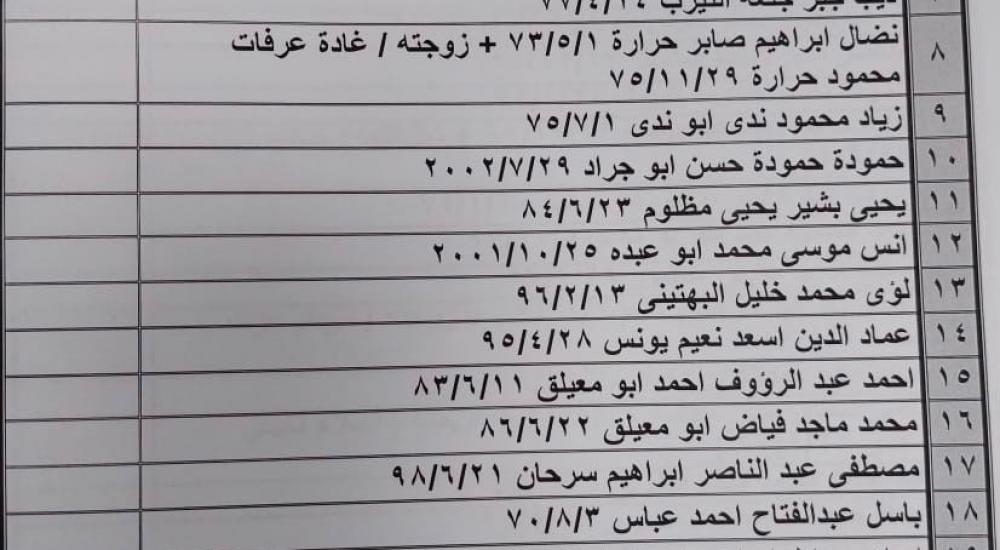 ٨ نضال ابراهيم صابر حرارة ٧٣/٥/١ + زوجته / غادة عرفات
محمود حرارة ٧٥/١١/٢٩
٩ زياد محمود ندى ابو ندى ٧٥/٧/١
١٠ حمودة حمودة حسن ابو جراد ٢٠٠٢/٧/٢٩
١١ يحيى بشير يحيى مظلوم ٨٤/٦/٢٣
١٢ انس موسى محمد ابو عبده ٢٠٠١/١٠/٢٥
١٣ لؤى محمد خليل البهتينى ٩٦/٢/١٣
١٤ عماد الدين اسعد نعيم يونس ٩٥/٤/٢٨
١٥ احمد عبد الرؤوف احمد ابو معيلق ٨٣/٦/١١
١٦ محمد ماجد فياض ابو معيلق ٨٦/٦/٢٢
١٧ مصطفى عبد الناصر ابراهيم سرحان ٩٨/٦/٢١
١٨ باسل عبدالفتاح احمد عباس ٧٠/٨/٣